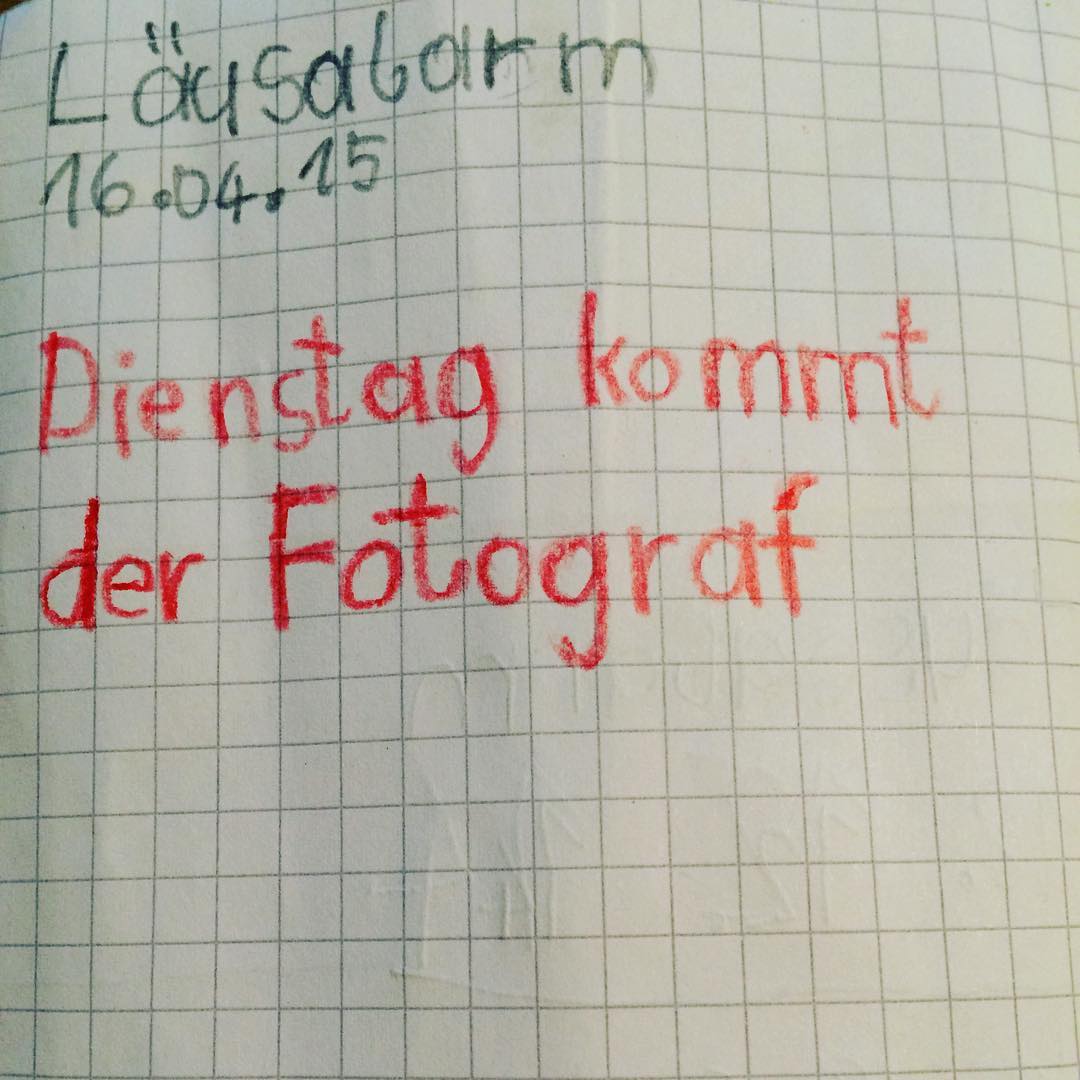 Läusalarm
16.04.15
Dienstag kommt
der Fotograf